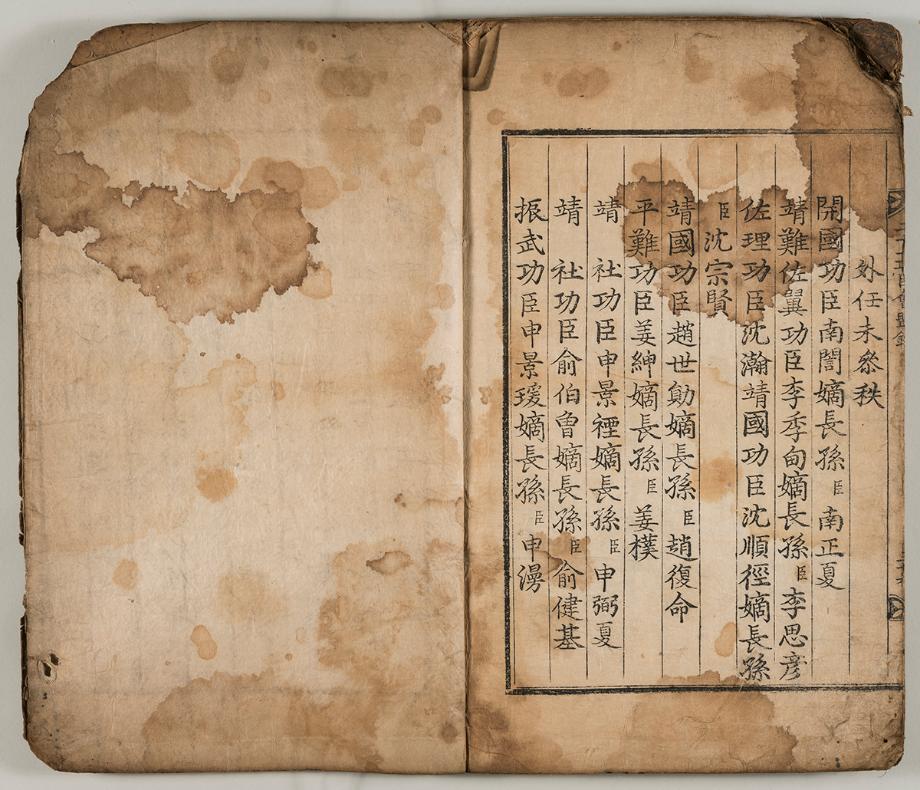 外任未叅秩
開國功臣南誾嫡長孫臣南正夏
靖難佐翼功臣李季甸嫡長孫臣李思彦
佐理功臣沈瀚靖國功臣沈順徑嫡長孫
臣沈宗賢
靖國功臣趙世勛嫡長孫臣趙復命
平難功臣姜紳嫡長孫臣姜樸
靖社功臣申景禋嫡長孫臣申弼夏
靖社功臣俞伯曽嫡長孫臣俞健基
振武功臣申景瑗嫡長孫臣申漫